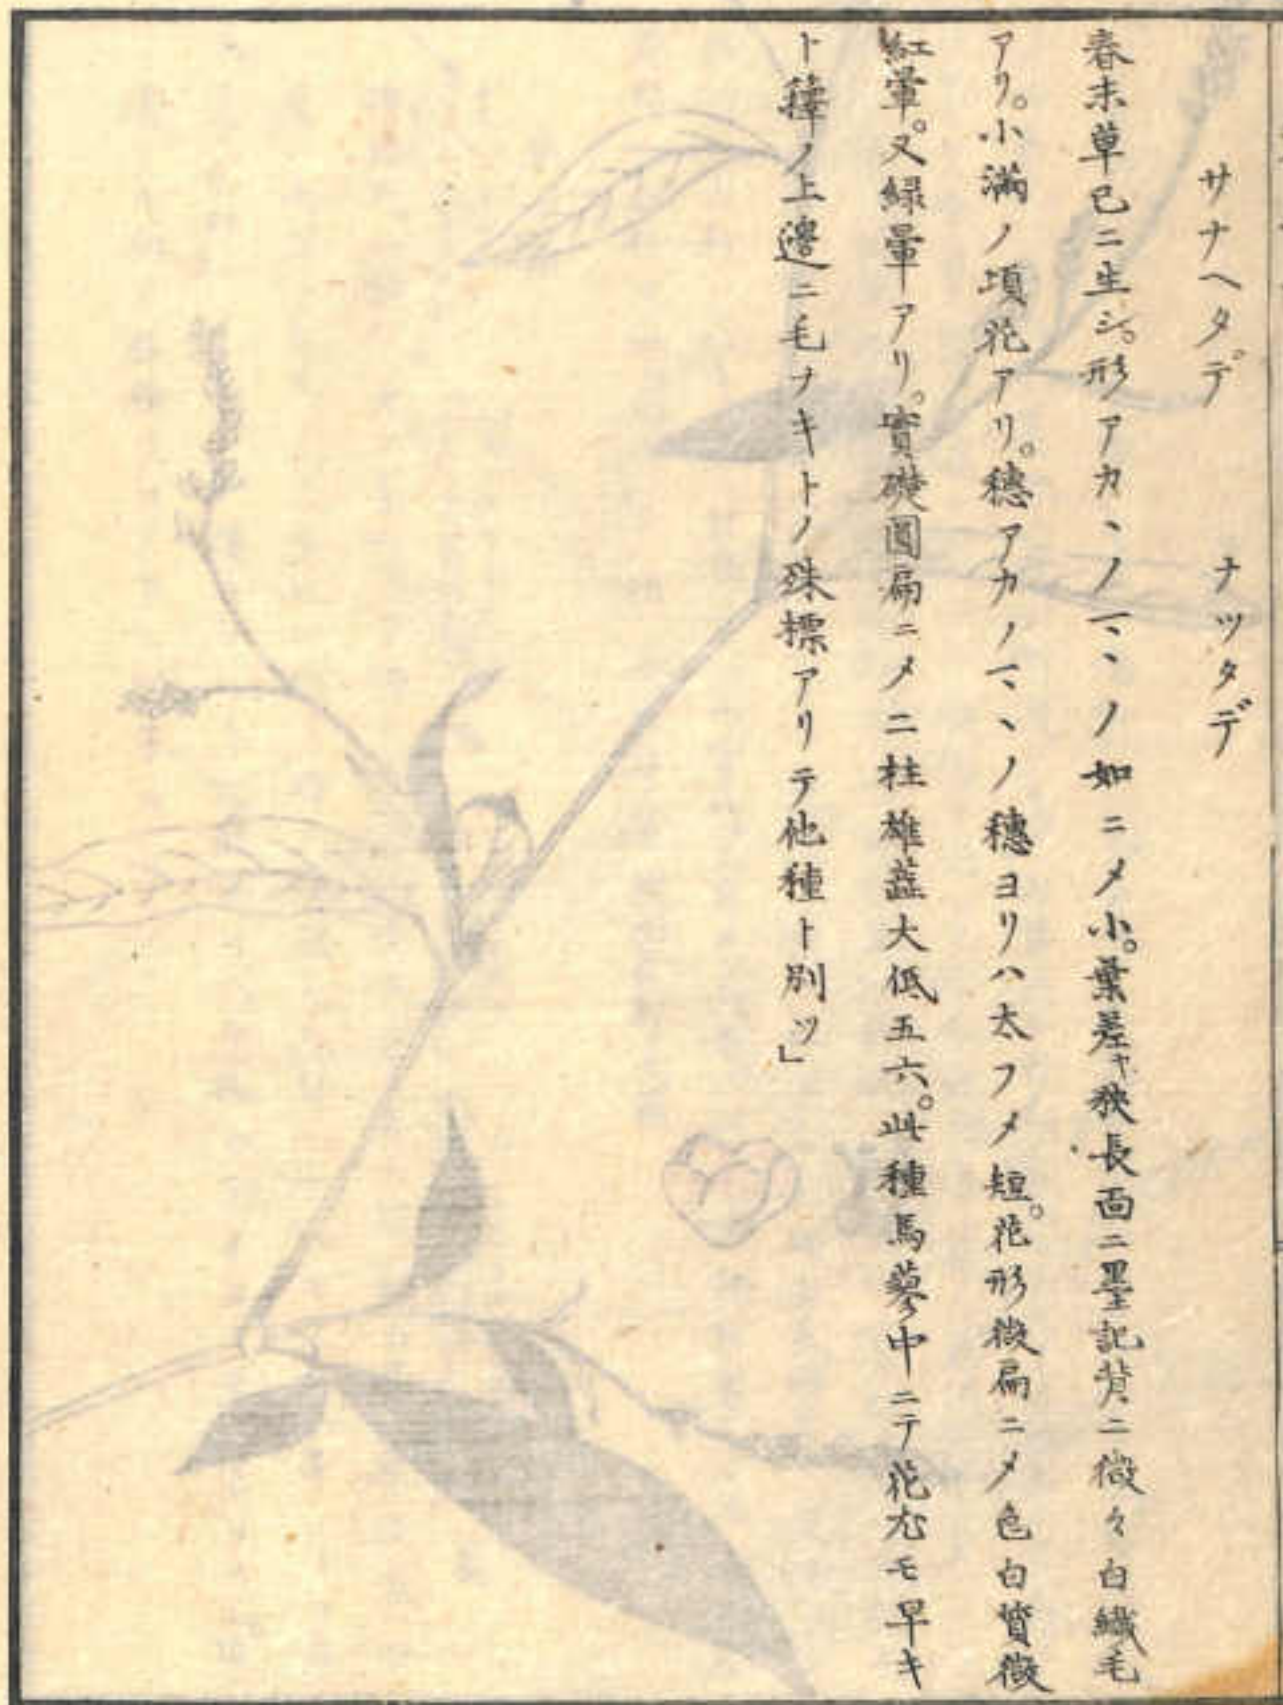 サナヘタデ　ナツタデ
春末草已ニ生シ。形アカヽノマヽノ如ニメ小。葉差ヤ狹長面ニ墨記背ニ微々白纎毛
アリ。小滿ノ頃花アリ。穗アカノマヽノ穗ヨリハ太フメ短。花形微扁ニメ色白質微
紅暈。又緑暈アリ。實礎圓扁ニメ二柱雄蕊大低五六。此種馬蓼中ニテ花尤モ早キ
ト籜ノ上邊ニ毛ナキトノ殊標アリテ他種ト別ツ」